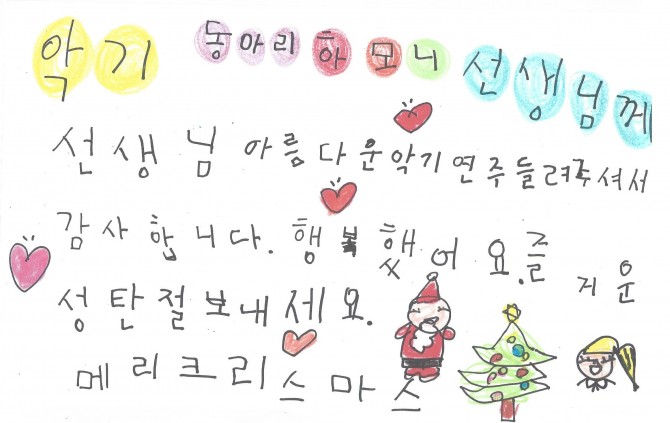 악기 동아리 하모니 선생님께
선생님 아름다운 악기 연주 들려주셔서
감사합니다. 행복했어요. 즐거운
성탄절 보내세요.
메리크리스마스